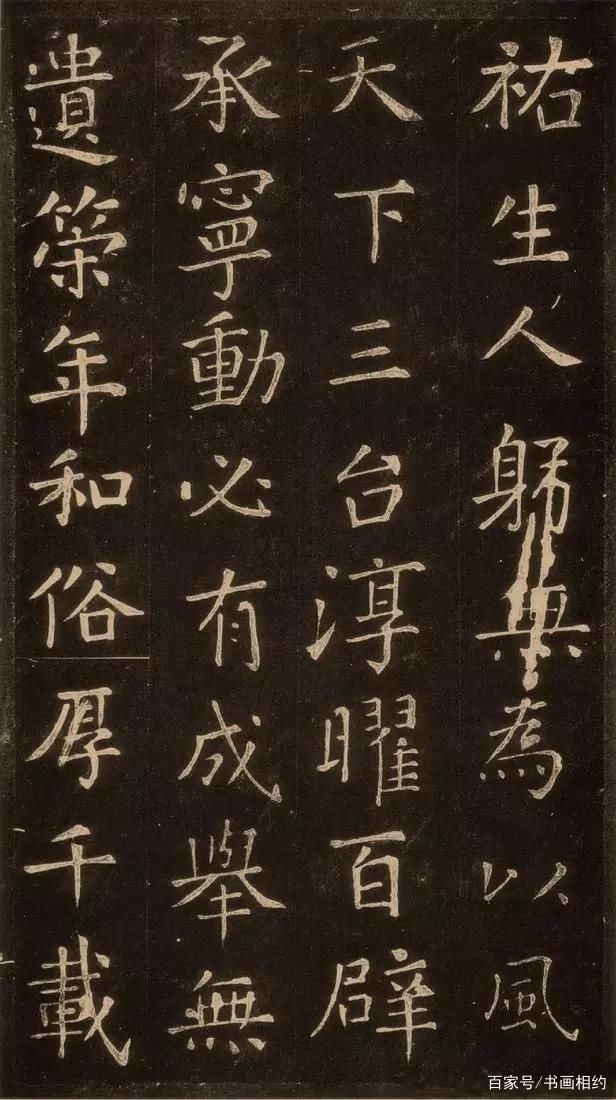 祐生人躬無為以風
天下三台淳曜百辟
承寧動必有成舉無
遺策年和俗厚千載
百家号/书画相约